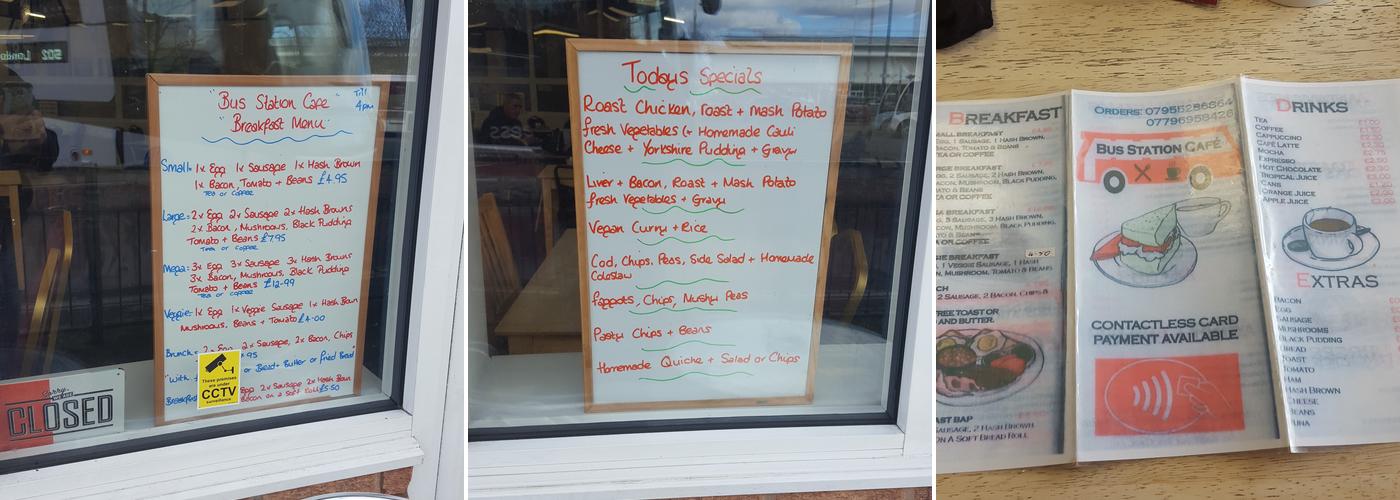 "Bus Station Cafe"
Till
4pm
"Breakfast Menu"
Small= 1x Egg 1x Sausage 1x Hash Brown
1x Bacon, Tomato + Beans £4.95
Tea or Coffee
Large= 2x Egg 2x Sausage 2x Hash Browns
2x Bacon, Mushrooms, Black Pudding
Tomato + Beans £7.95
Tea or Coffee
Mega= 3x Egg 3x Sausage 3x Hash Browns
3x Bacon, Mushrooms, Black Pudding
Tomato + Beans £12-99
Tea or Coffee
Veggie= 1x Egg 1x Veggie Sausage 1x Hash Brown
Mushrooms, Beans + Tomato £4.00
Brunch= 2x Egg 2x Sausage, 2x Bacon, Chips
95
"With or Bread + Butter or Fried Bread"
Breakfast Egg 2x Sausage 2x Hash Brown
Bacon on a Soft £5.50
These premises
are under
CCTV
surveillance
Sorry
WE ARE
CLOSED
502 London
Todays Specials
Roast Chicken, roast + Mash Potato
fresh Vegetables (+ Homemade Cauli
Cheese + Yorkshire Pudding + Gravy
Liver + Bacon, Roast + Mash Potato
fresh Vegetables + Gravy
Vegan Curry + Rice
Cod, Chips, Peas, Side Salad + Homemade
Coleslaw
faggots, Chips, Mushy Peas
Pasty Chips + Beans
Homemade Quiche + Salad or Chips
BREAKFAST
MALL BREAKFAST
EGG, 1 SAUSAGE, 1 HASH BROWN,
BACON, TOMATO & BEANS
TEA OR COFFEE
RGE BREAKFAST
EGG, 2 SAUSAGE, 2 HASH BROWN,
ACON, MUSHROOM, BLACK PUDDING,
TO & BEANS
A OR COFFEE
A BREAKFAST
EGG, 3 SAUSAGE, 3 HASH BROWN,
ACON, MUSHROOM, BLACK PUDDING,
TO & BEANS
A OR COFFEE
IE BREAKFAST 4.50
, 1 VEGGIE SAUSAGE, 1 HASH
N, MUSHROOM, TOMATO & BEANS
CH
2 SAUSAGE, 2 BACON, CHIPS &
FREE TOAST OR
AND BUTTER.
AST BAP
SAUSAGE, 2 HASH BROWN
ON A SOFT BREAD ROLL
ORDERS: 07955286864
07796958426
BUS STATION CAFÉ
CONTACTLESS CARD
PAYMENT AVAILABLE
DRINKS
TEA
COFFEE
CAPPUCCINO
CAFE LATTE
MOCHA
EXPRESSO
HOT CHOCOLATE
TROPICAL JUICE
CANS
ORANGE JUICE
APPLE JUICE
EXTRAS
BACON
EGG
SAUSAGE
MUSHROOMS
BLACK PUDDING
BREAD
TOAST
TOMATO
HAM
HASH BROWN
CHEESE
BEANS
TUNA